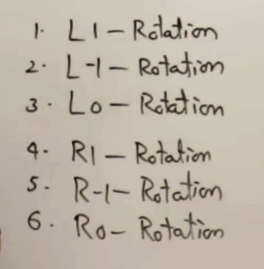 1. L1 – Rotation
2. L-1 – Rotation
3. L0 – Rotation
4. R1 – Rotation
5. R-1 – Rotation
6. R0 – Rotation